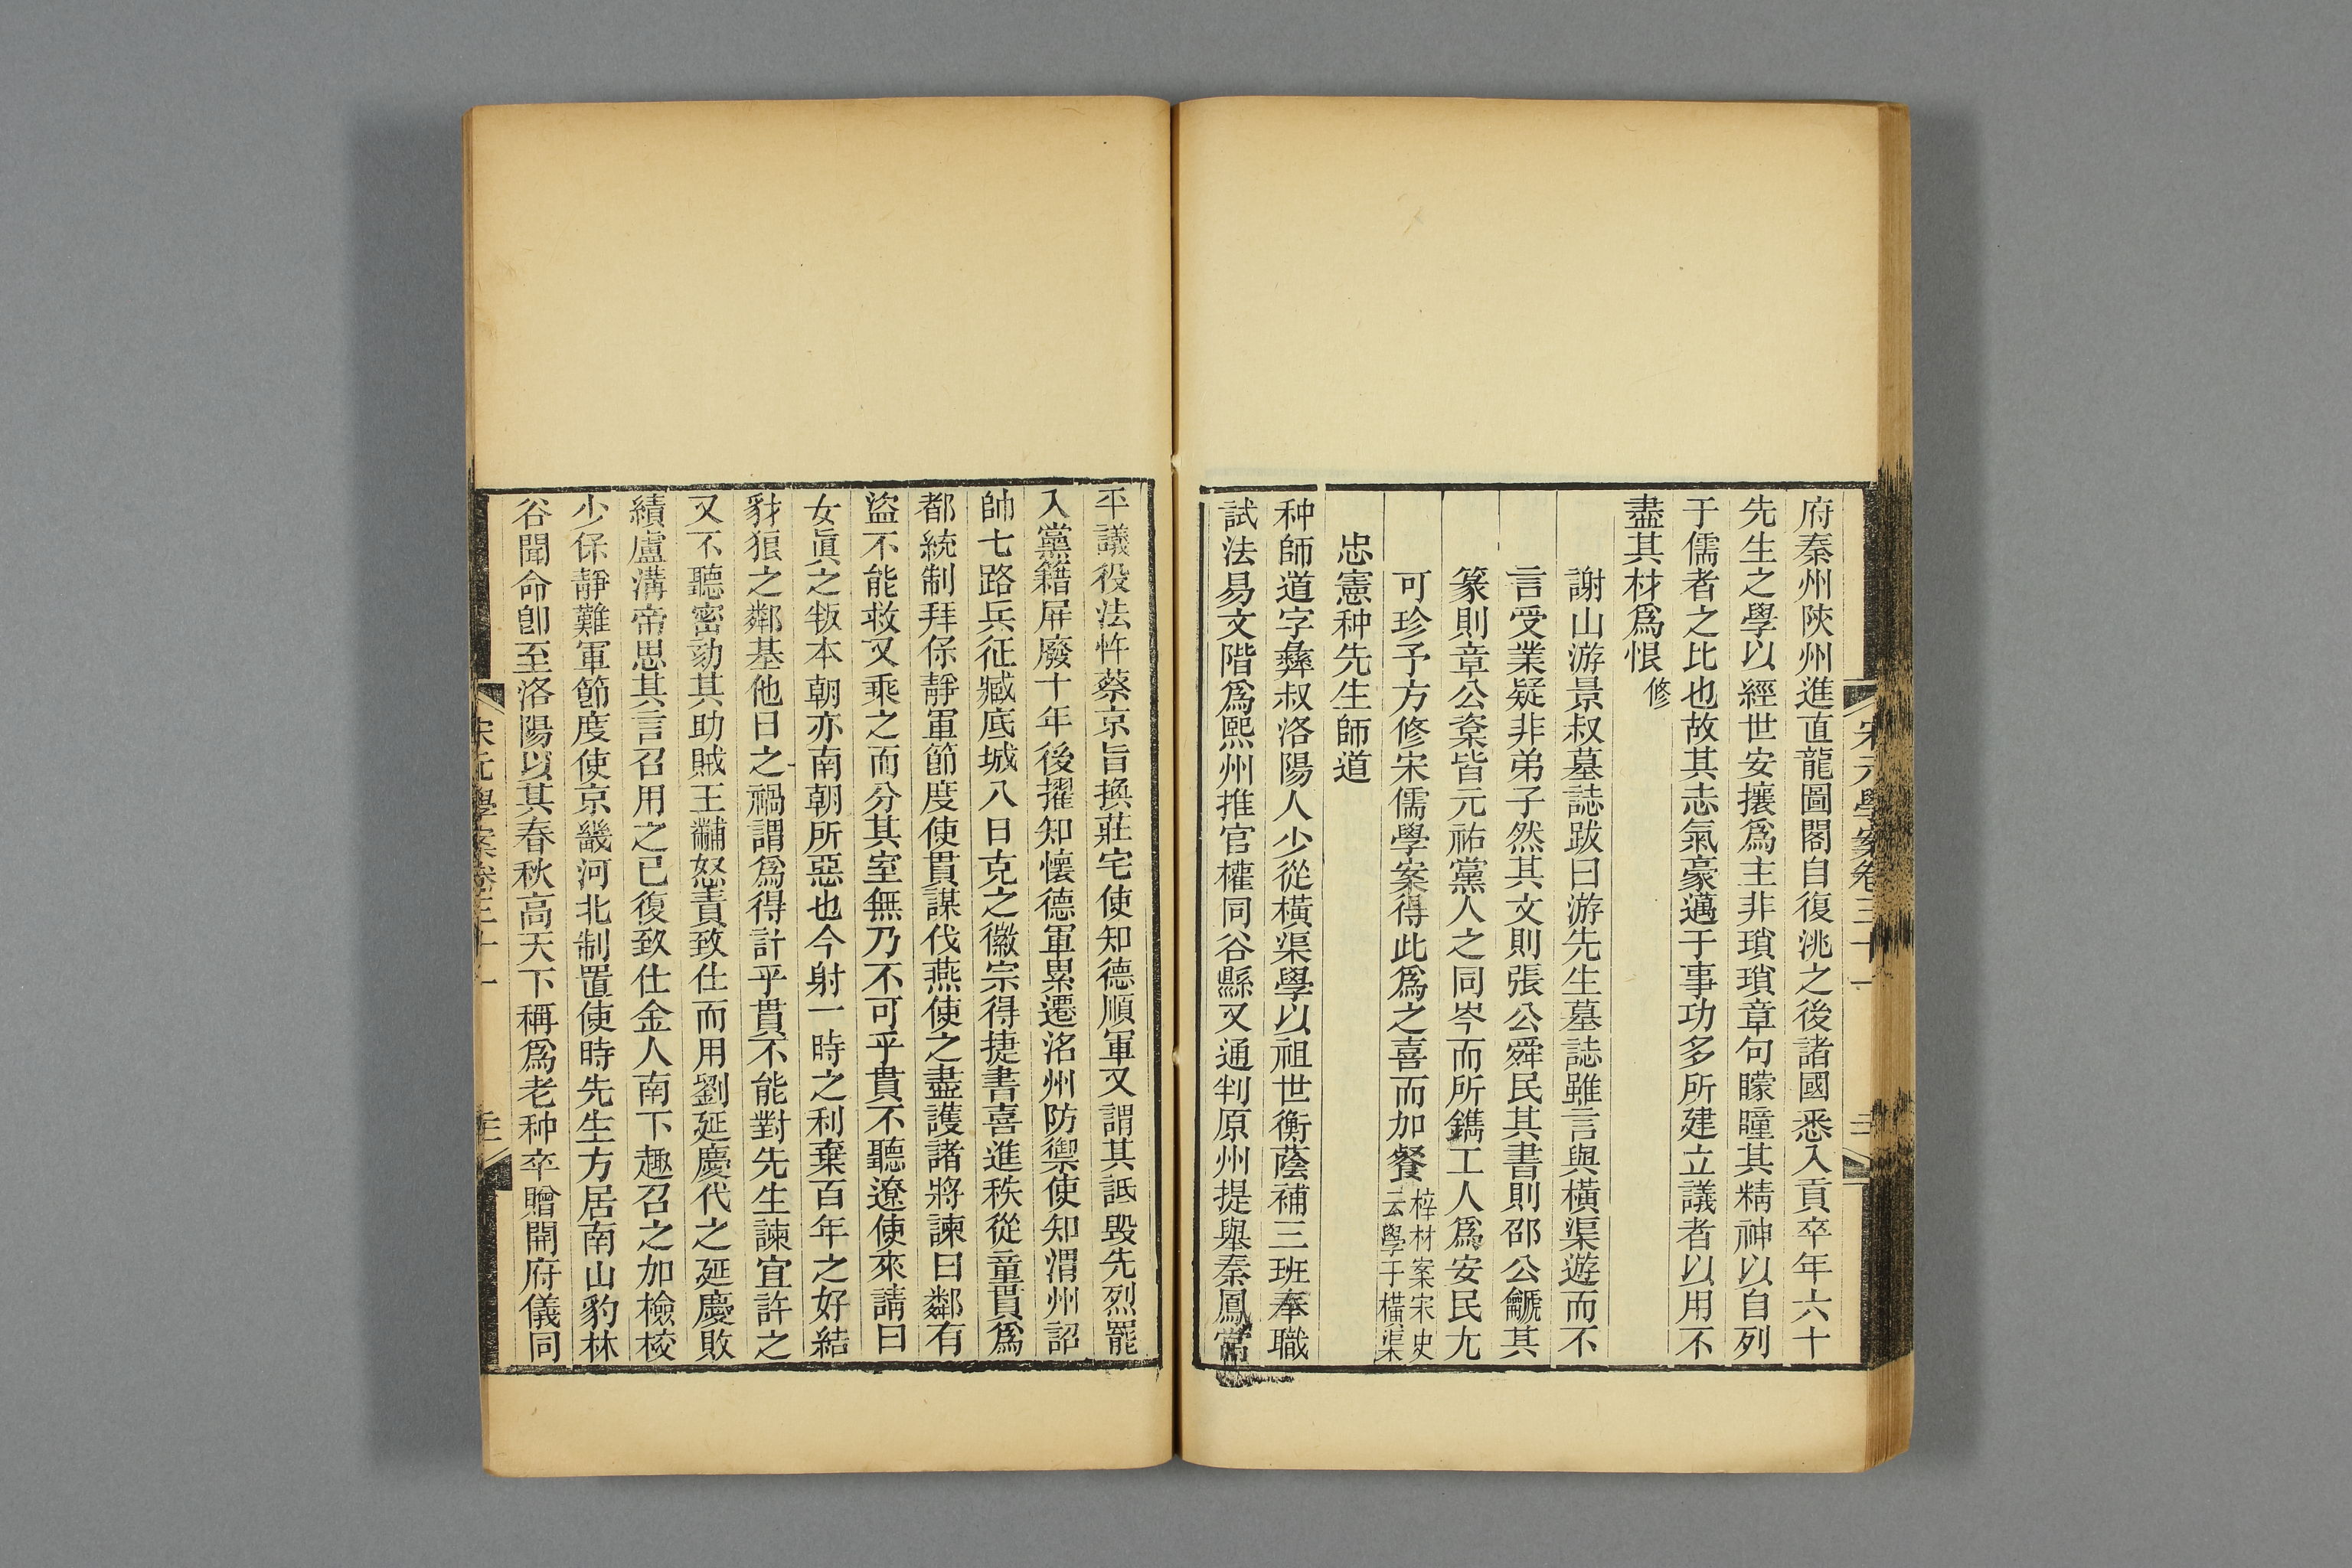 府秦州陝州進直龍圖閣自復洮之後諸國悉入貢卒年六十
先生之學以經世安攘爲主非瑣瑣章句矇瞳其精神以自列
于儒者之比也故其志氣豪邁于事功多所建立議者以用不
盡其材爲恨修
謝山游景叔墓誌跋曰游先生墓誌雖言與橫渠遊而不
言受業疑非弟子然其文則張公舜民其書則邵公𪛃其
篆則章公楶皆元祐黨人之同岑而所鐫工人爲安民尤
可珍予方修宋儒學案得此爲之喜而加餐梓材案宋史云學于橫渠
忠憲种先生師道
种師道字彝叔洛陽人少從橫渠學以祖世衡蔭補三班奉職
試法易文階爲熙州推官權同谷縣又通判原州提舉秦鳳常
宋元學案卷三十一
平議役法忤蔡京旨換莊宅使知德順軍又謂其詆毀先烈罷
入黨籍屏廢十年後擢知懷德軍累遷洺州防禦使知渭州詔
帥七路兵征臧底城八日克之徽宗得捷書喜進秩從童貫爲
都統制拜保靜軍節度使貫謀伐燕使之盡護諸將諫曰鄰有
盜不能救又乘之而分其室無乃不可乎貫不聽遼使來請曰
女眞之叛本朝亦南朝所惡也今射一時之利棄百年之好結
豺狼之鄰基他日之禍謂爲得計乎貫不能對先生諫宜許之
又不聽密劾其助賊王黼怒責致仕而用劉延慶代之延慶敗
績盧溝帝思其言召用之已復致仕金人南下趣召之加檢校
少保靜難軍節度使京畿河北制置使時先生方居南山豹林
谷聞命卽至洛陽以其春秋高天下稱爲老种卒贈開府儀同
宋元學案卷三十一